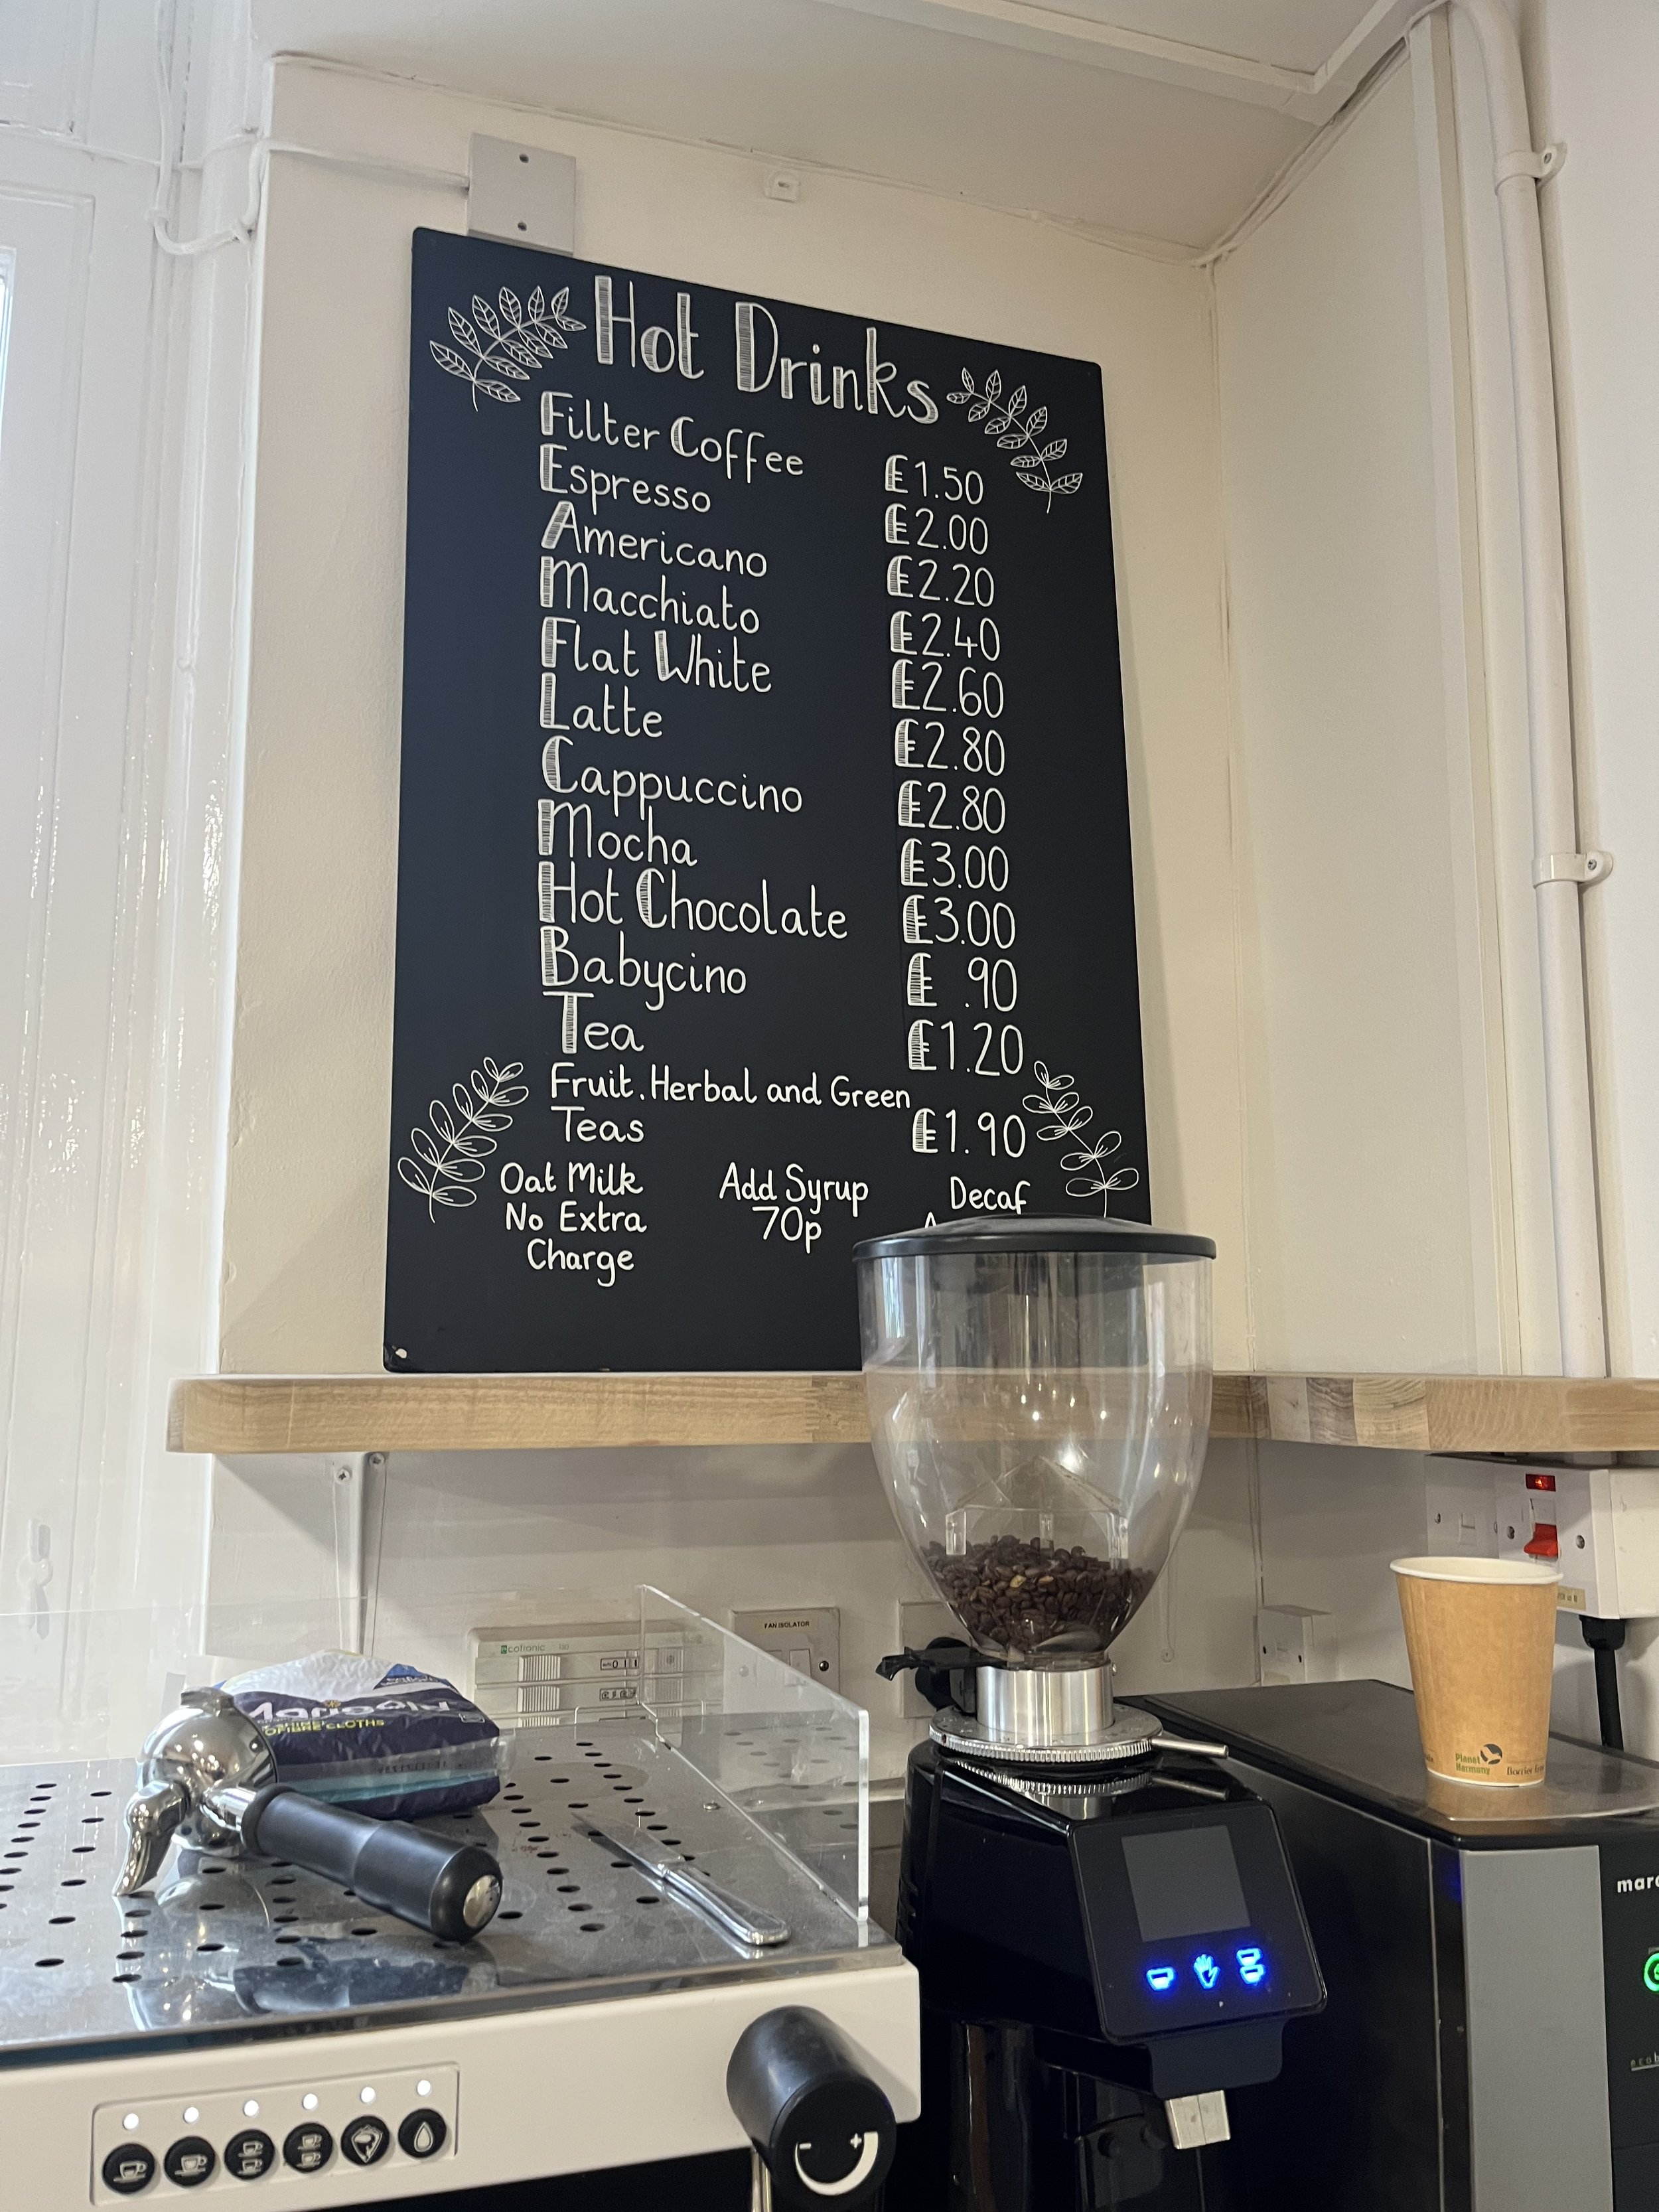 Hot Drinks
Filter Coffee £1.50
Espresso £2.00
Americano £2.20
Macchiato £2.40
Flat White £2.60
Latte £2.80
Cappuccino £2.80
Mocha £3.00
Hot Chocolate £3.00
Babycino £ .90
Tea £1.20
Fruit. Herbal and Green
Teas £1.90
Oat Milk
No Extra
Charge
Add Syrup
70p
Decaf
FAN ISOLATOR
CLOTHS
Planet
Harmony